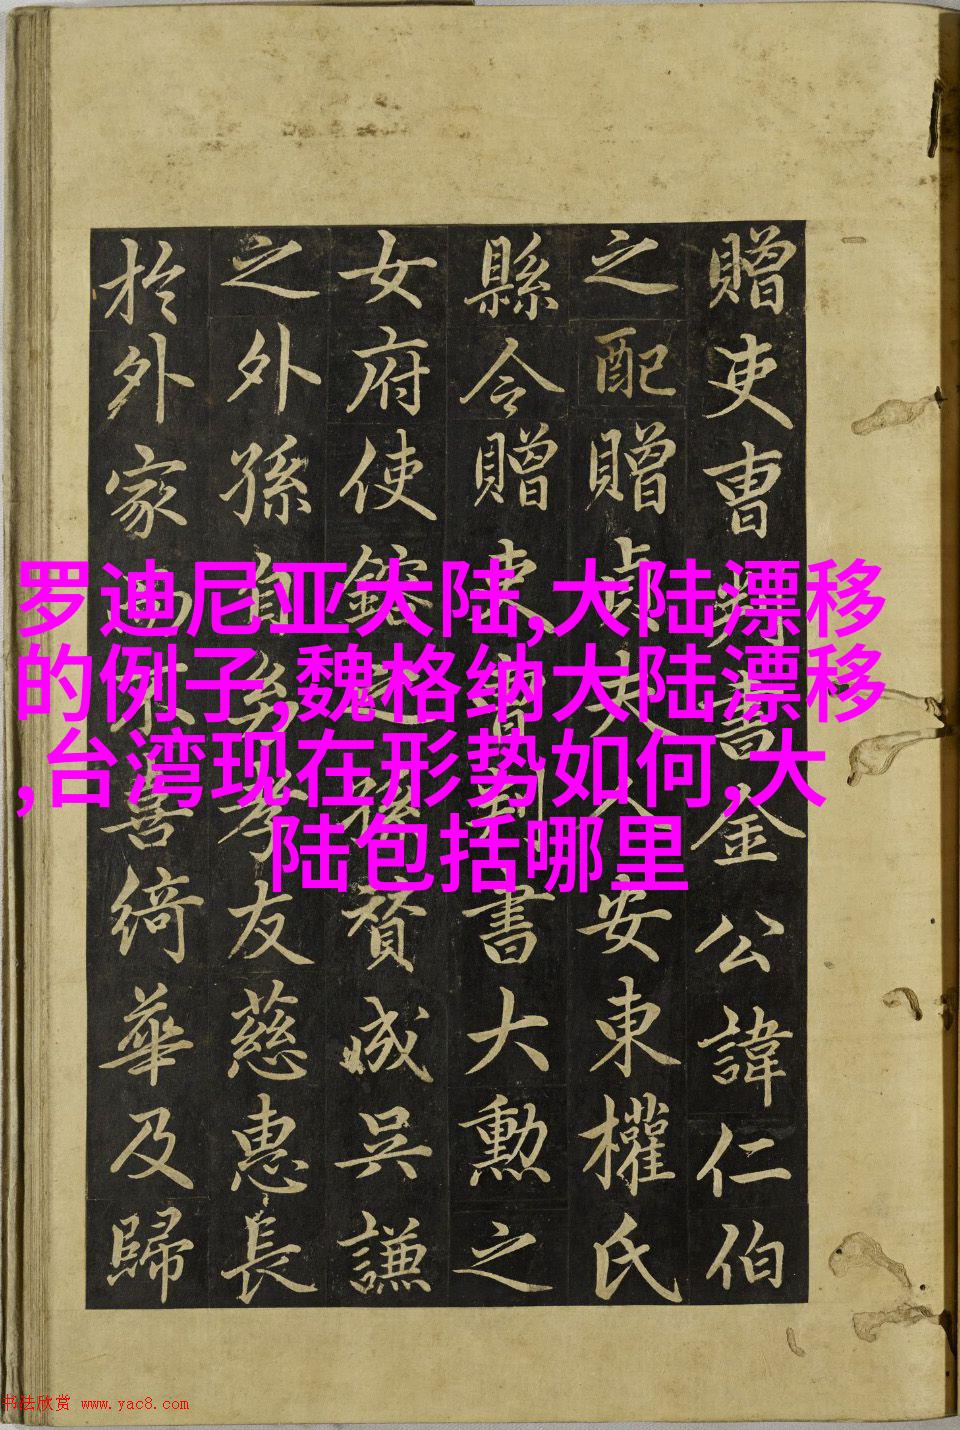 罗迪尼亚大陆,大陆漂移
的例子,魏格纳大陆漂移
,台湾现在形势如何,大
陆包括哪里
贈吏曹書金公諱仁伯
之配贈貞夫人安東權氏
縣令贈吏曹判書大勳之
女府使之孫贊成吳謙
之外孫自幼孝友慈惠長
於外家而不喜綺華及歸
书法欣赏 www.yac8.com